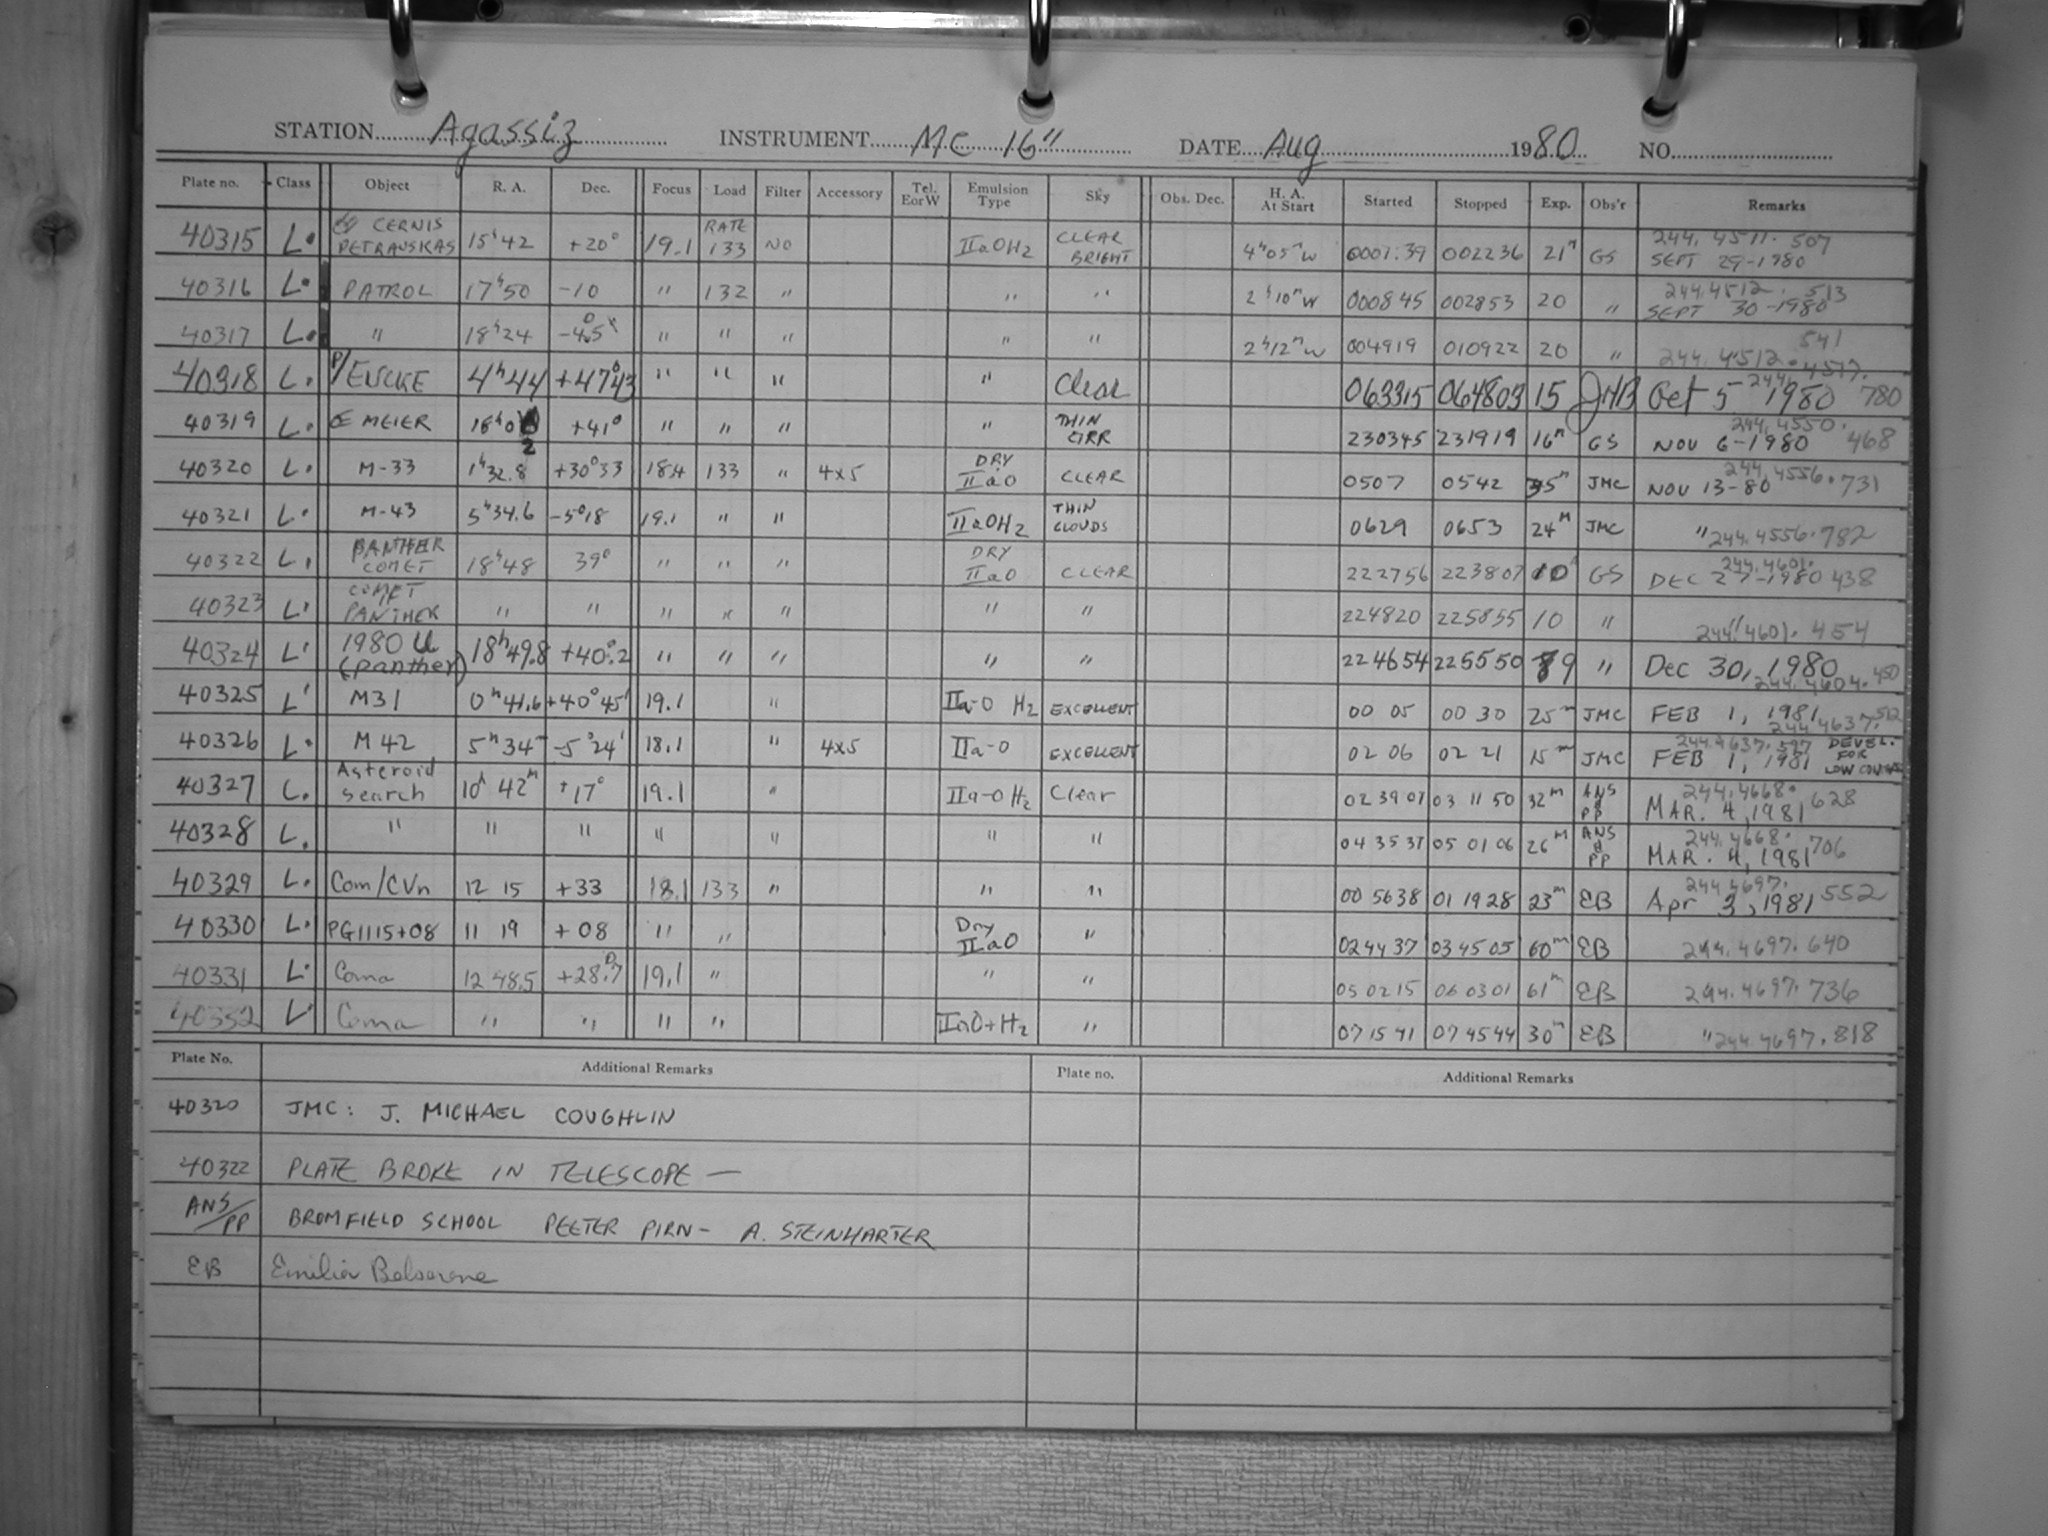 STATION Agassiz INSTRUMENT MC 16" DATE Aug 1980 NO.
Plate no. Class Object R. A. Dec. Focus Load Filter Accessory Tel. E or W Emulsion Type Sky Obs. Dec. H. A. At Start Started Stopped Exp. Obs'r Remarks
40315 L CERNIS PETRAUSKAS 15h42 +20° 19.1 RATE 133 NO IIaOH2 CLEAR BRIGHT 4h05mW 0001:39 002236 21m GS 244.4511.507 SEPT 29-1980
40316 L PATROL 17h50 -10 " 132 " " " 2h10mW 000845 002853 20 " 244.4512.513 SEPT 30-1980
40317 L " 18h24 -4.5° " " " " " 2h12mW 004919 010922 20 " 244.4512.541
40318 L P/ENCKE 4h44 +47°43 " " " " Clear 063315 064803 15 JHB Oct 5 1980 244.4517.780
40319 L MEIER 18h02 +41° " " " " THIN CIRR 230345 231919 16m GS NOV 6-1980 244.4550.468
40320 L M-33 1h32.8 +30°33 18.4 133 " 4x5 DRY IIaO CLEAR 0507 0542 35m JMC NOV 13-80 244.4556.731
40321 L M-43 5h34.6 -5°18 19.1 " " IIaOH2 THIN CLOUDS 0629 0653 24M JMC " 244.4556.782
40322 L PANTHER COMET 18h48 39° " " " DRY IIaO CLEAR 222756 223807 10 GS 244.4601.438 DEC 27-1980
40323 L COMET PANTHER " " " " " " " 224820 225855 10 " 244.4601.454
40324 L 1980 u (panther) 18h49.8 +40°.2 " " " " " 224654 225550 9 " Dec 30, 1980 244.4604.450
40325 L M31 0h41.6 +40°45' 19.1 " IIa-O H2 EXCELLENT 00 05 00 30 25m JMC FEB 1, 1981 244.4637.512
40326 L M42 5h34m -5°24' 18.1 " 4x5 IIa-O EXCELLENT 02 06 02 21 15m JMC 244.4637.597 FEB 1, 1981 DEVEL. FOR LOW
40327 L Asteroid search 10h 42m +17° 19.1 " IIa-O H2 Clear 02 39 07 03 11 50 32m ANS & PP 244.4668.628 MAR. 4, 1981
40328 L " " " " " " " 04 35 37 05 01 06 26M ANS & PP 244.4668.706 MAR. 4, 1981
40329 L Com/CVn 12 15 +33 18.1 133 " " " 00 56 38 01 19 28 23m EB 244.4697.552 Apr 3, 1981
40330 L PG1115+08 11 19 +08 " " Dry IIaO " 02 44 37 03 45 05 60m EB 244.4697.640
40331 L Coma 12 48.5 +28.°7 19.1 " " " 05 02 15 06 03 01 61m EB 244.4697.736
40332 L Coma " " " " IIaO+H2 " 07 15 41 07 45 44 30m EB " 244.4697.818
Plate No. Additional Remarks Plate no. Additional Remarks
40320 JMC: J. MICHAEL COUGHLIN
40322 PLATE BROKE IN TELESCOPE —
ANS/PP BROMFIELD SCHOOL PEETER PIRN - A. STEINHARTER
EB Emilia Belserene